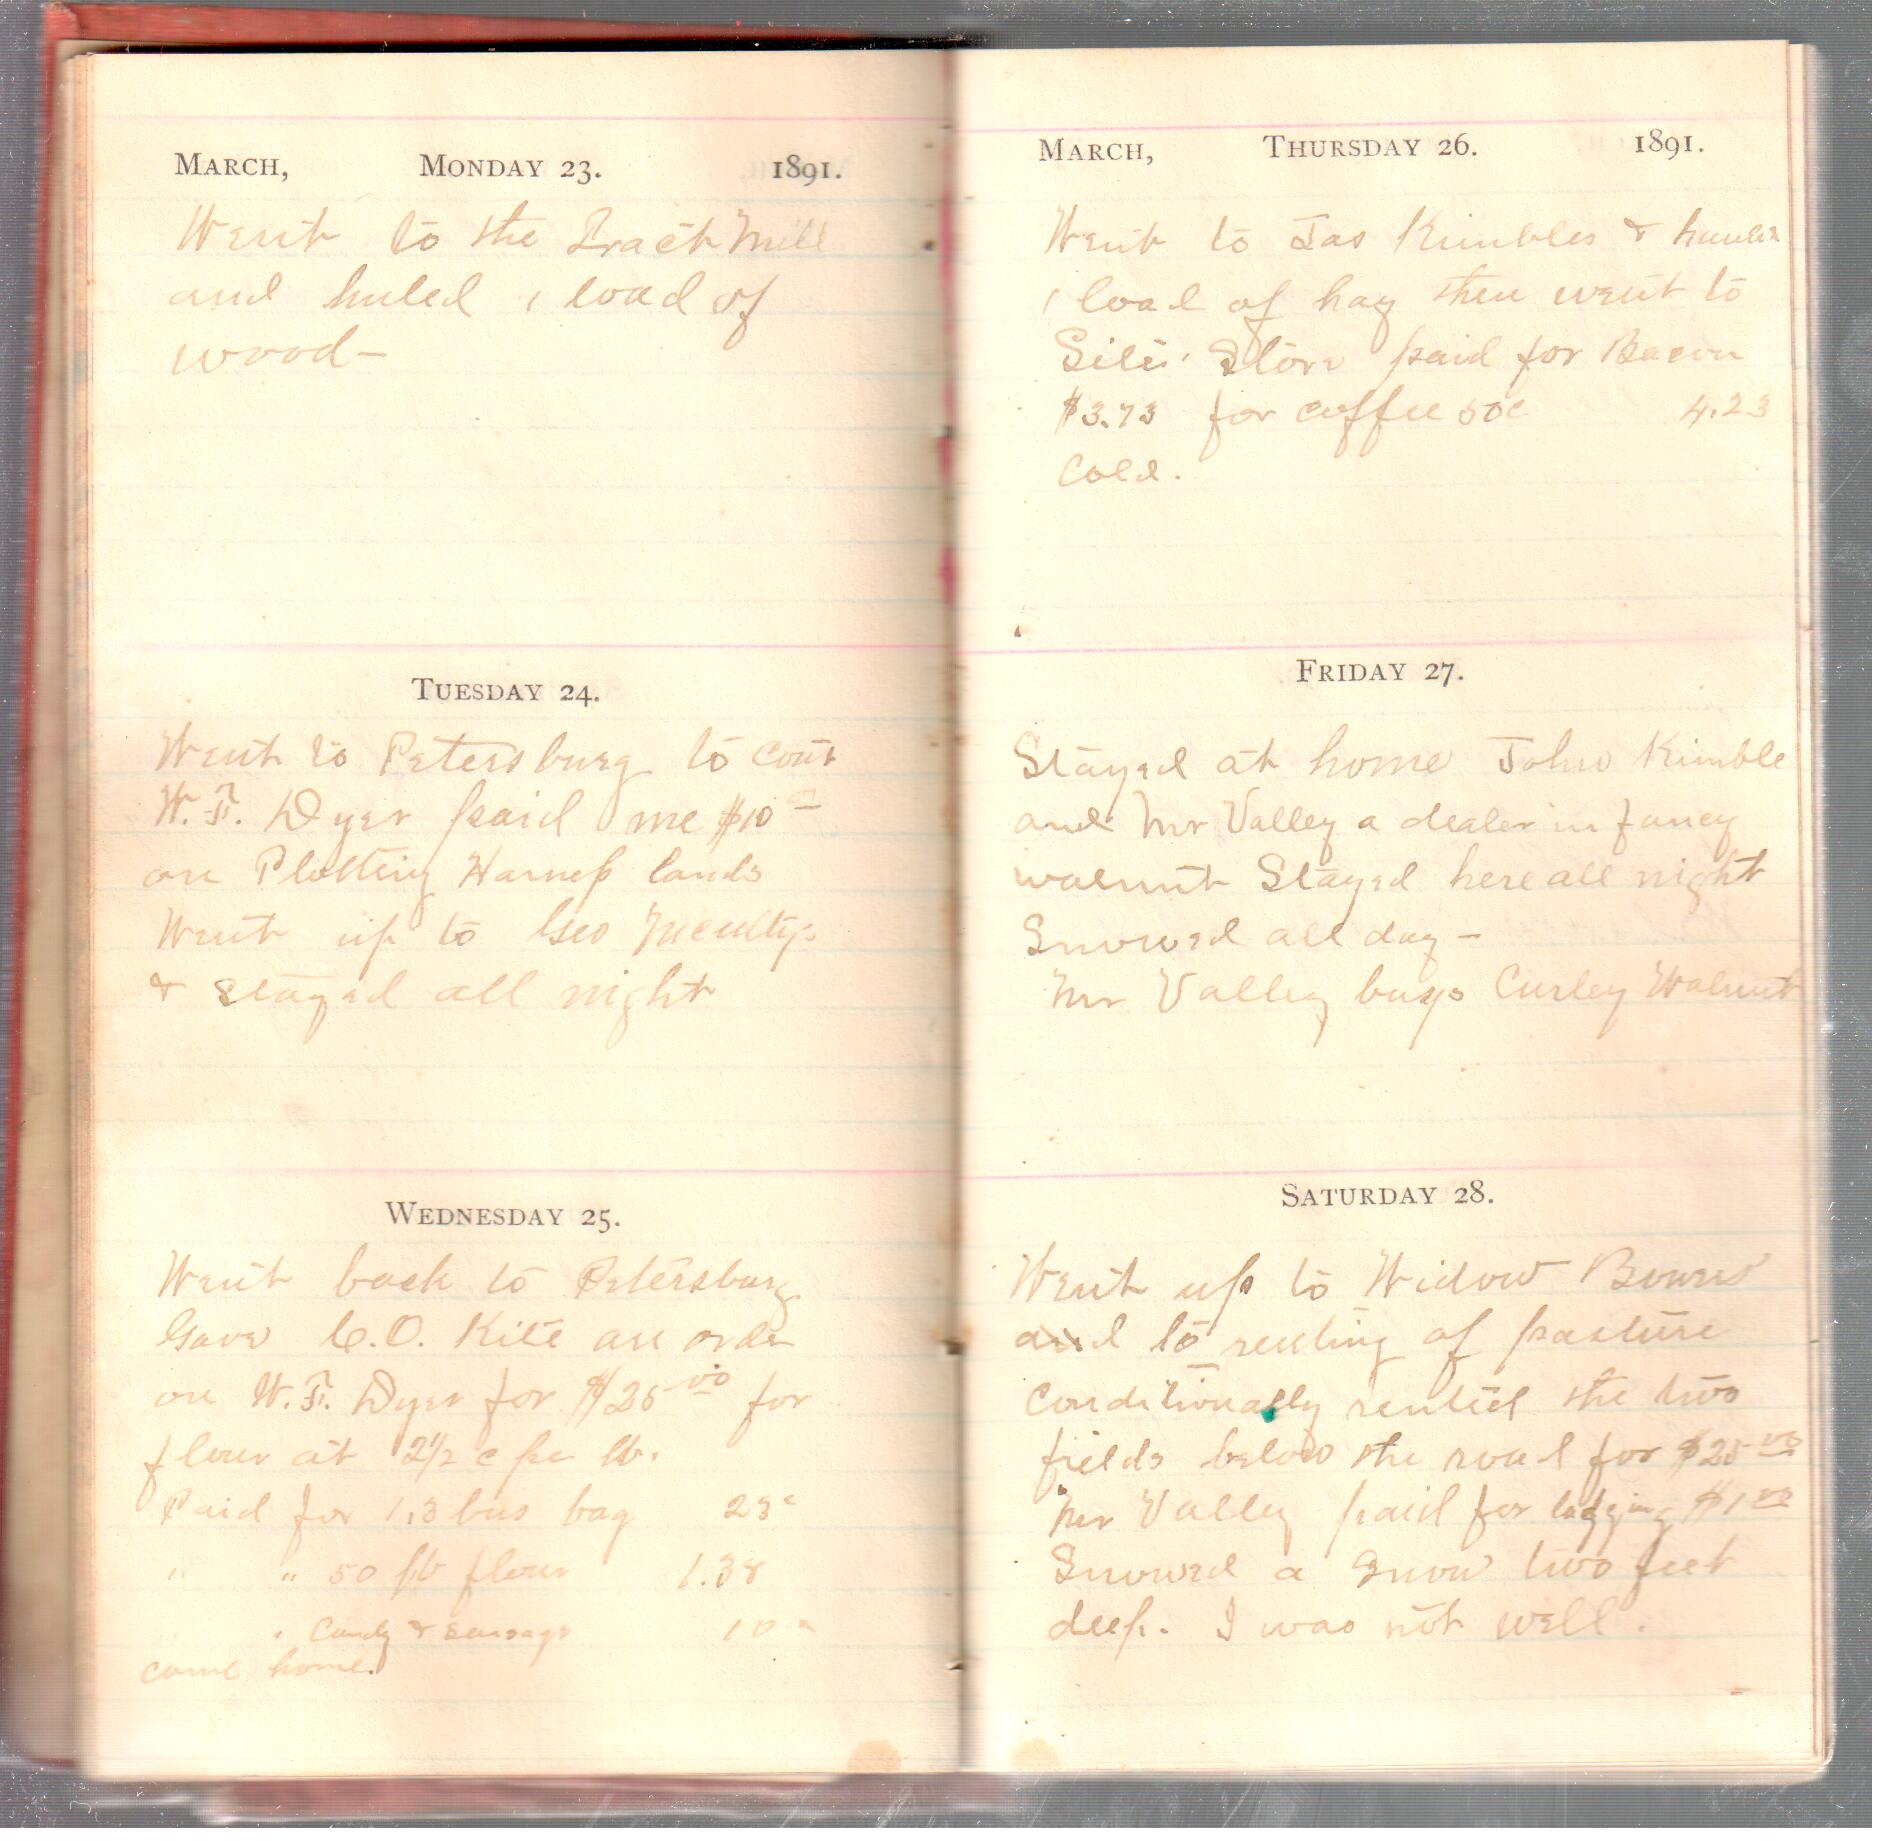 MARCH, MONDAY 23. 1891.
Went to the Tract Mill
and huled 1 load of
wood-
TUESDAY 24.
Went to Petersburg to Cout
W. F. Dyer paid me $10 -
on Plotting Harness lands
Went up to Geo
& stayed all night
WEDNESDAY 25.
Went back to Petersburg
Gave C.O. Kite an order
on W. F. Dyer for $25 00 for
flour at 2 1/2 c per lb.
Paid for 1, 3 bus bag 23c
" " 50 lb flour 1.38
" Candy & sausage 10
came home.
MARCH, THURSDAY 26. 1891.
Went to Jas Kimbles &
1 load of hay then went to
Sites' Store paid for Bacon
$3.73 for coffee 50c 4.23
Cold.
FRIDAY 27.
Stayed at home John Kimble
and Mr Valley a dealer in fancy
walnut Stayed here all night
Snowed all day -
Mr Valley buys Curley Walnut
SATURDAY 28.
Went up to Widow
and to renting of pasture
conditionally rented the two
fields below the road for $25 00
Mr Valley paid for lodging $1 00
Snowed a Snow two feet
deep. I was not well.